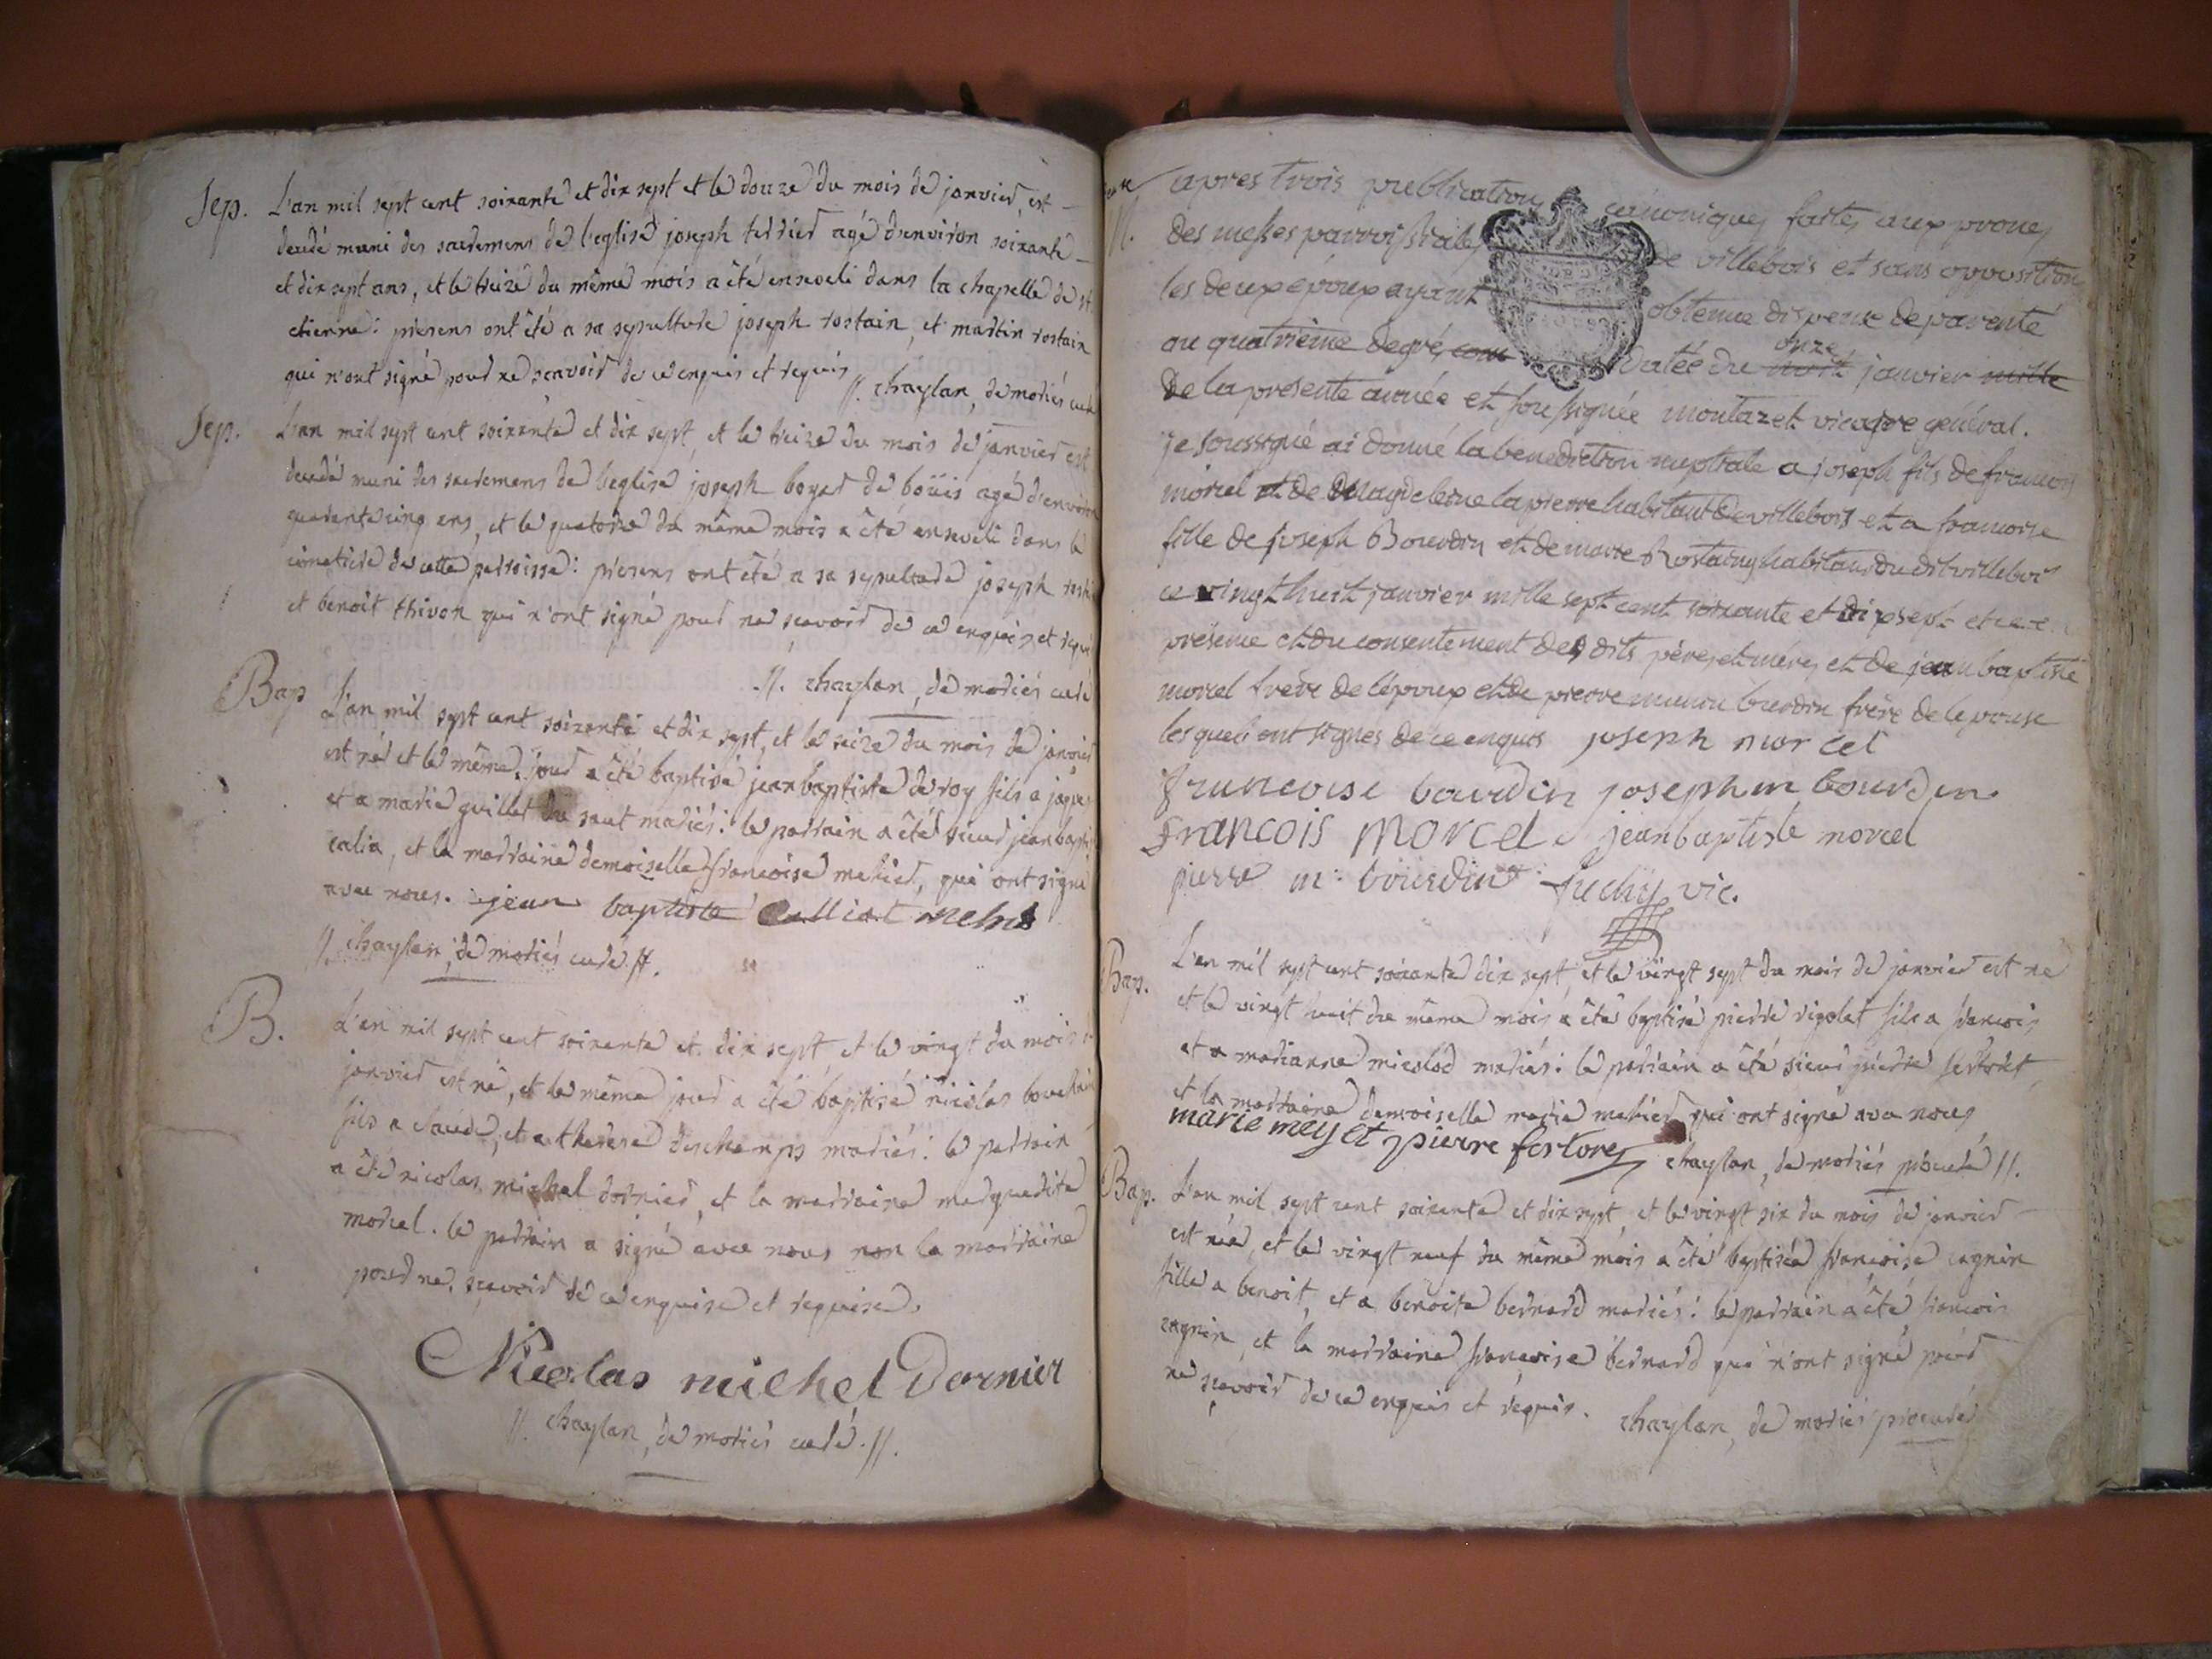 Sep. L'an mil sept cent soixante et dix sept et le douze du mois de janvier, est
decedé muni des sacremens de l'eglise joseph terrier agé d'environ soixante
et dix sept ans, et le treize du même mois a été enseveli dans la chapelle de st.
etienne: presens ont été a sa sepulture joseph rostain, et martin rostain
qui n'ont signé pour ne scavoir de ce enquis et requis //. chaylan, de moriés curé
Sep. L'an mil sept cent soixante et dix sept, et le treize du mois de janvier est
decedé muni des sacremens de l'eglise joseph boyer de boüis agé d'environ
quarante cinq ans, et le quatorze du même mois a été enseveli dans le
cimetiere de cette parroisse: presens ont été a sa sepulture joseph
et benoit thivon qui n'ont signé pour ne scavoir de ce enquis et requis
//. chaylan, de moriés curé
Bap L'an mil sept cent soixante et dix sept, et le seize du mois de janvier
est né et le même jour a été baptisé jean baptiste deroy fils a jaques
et a marie guillet du saut mariés: le parrain a été sieur jean baptiste
calia, et la marraine demoiselle francoise mehier, qui ont signé
avec nous. jean baptiste Calliat
// chaylan, de moriés curé //.
B. L'an mil sept cent soixante et dix sept et le vingt du mois de
janvier est né, et le même jour a été baptisé nicolas
fils a claude, et a therese deschamps mariés: le parrain
a été nicolas michel dornier, et la marraine marguerite
morcel. le parrain a signé avec nous non la marraine
pour ne scavoir de ce enquise et requise.
Nicolas michel Dornier
//. chaylan, de moriés curé. //.
apres trois publications canoniques faites aux prones
M. des messes parroissiales de villebois et sans opposition
les deux époux ayant obtenue dispense de parenté
au quatrieme degré, datée du onze janvier mille
de la presente année et soussignée montazet vicaire general.
je soussigné ai donné la benediction nuptiale a joseph fils de francois
morcel et de Magdeleine lapierre habitant de villebois et a francoise
fille de joseph Bourdin et de marie Rostaing habitans du dit villebois
ce vingt huit janvier mille sept cent soixante et dix sept et en
présence et du consentement des dits pères et mères et de jean baptiste
morcel frère de l'époux et de pierre bourdin frère de l'epouse
lesquels ont signés de ce enquis joseph morcel
francoise bourdin joseph m bourdin
francois Morcel jean baptiste morcel
pierre m. bourdin vic.
Bap. L'an mil sept cent soixante dix sept, et le vingt sept du mois de janvier est né
et le vingt huit du même mois a été baptisé pierre rigolet fils a francois
et a marianne micolod mariés: le parrain a été sieur pierre
et la marraine demoiselle marie mehier qui ont signé avec nous
marie pierre chaylan, de moriés procuré //.
Bap. L'an mil sept cent soixante et dix sept, et le vingt six du mois de janvier
est née, et le vingt neuf du même mois a été baptisée francoise cagnin
fille a benoit, et a benoite bernard mariés: le parrain a été francois
cagnin, et la marraine francoise bernard qui n'ont signé pour
ne scavoir de ce enquis et requis. chaylan, de moriés procuré